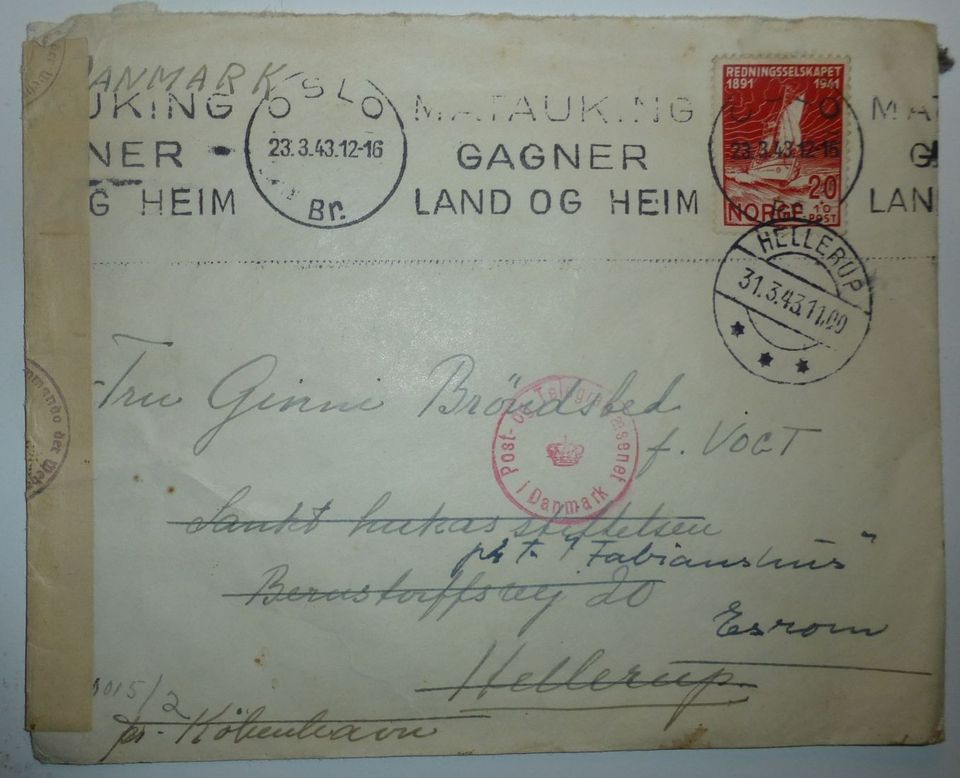 DANMARK
REDNINGSSELSKAPET
1891 1941
20
+10
NORGE POST
OSLO
23.3.43.12-16
Br.
UKING
NER
G HEIM
MATAUKING
GAGNER
LAND OG HEIM
OSLO
23.3.43.12-16
Br.
MA
G
LAN
HELLERUP
31.3.43.11.00
Fru Ginni Bröndsted
f. VOGT
Post- og Telegrafvæsenet
i Danmark
Sankt Lukas stiftelsen
p.t. "Fabianshus"
Bernstorffsvej 20
Esrom
Hellerup
015/2
pr. København
mmando der Weh